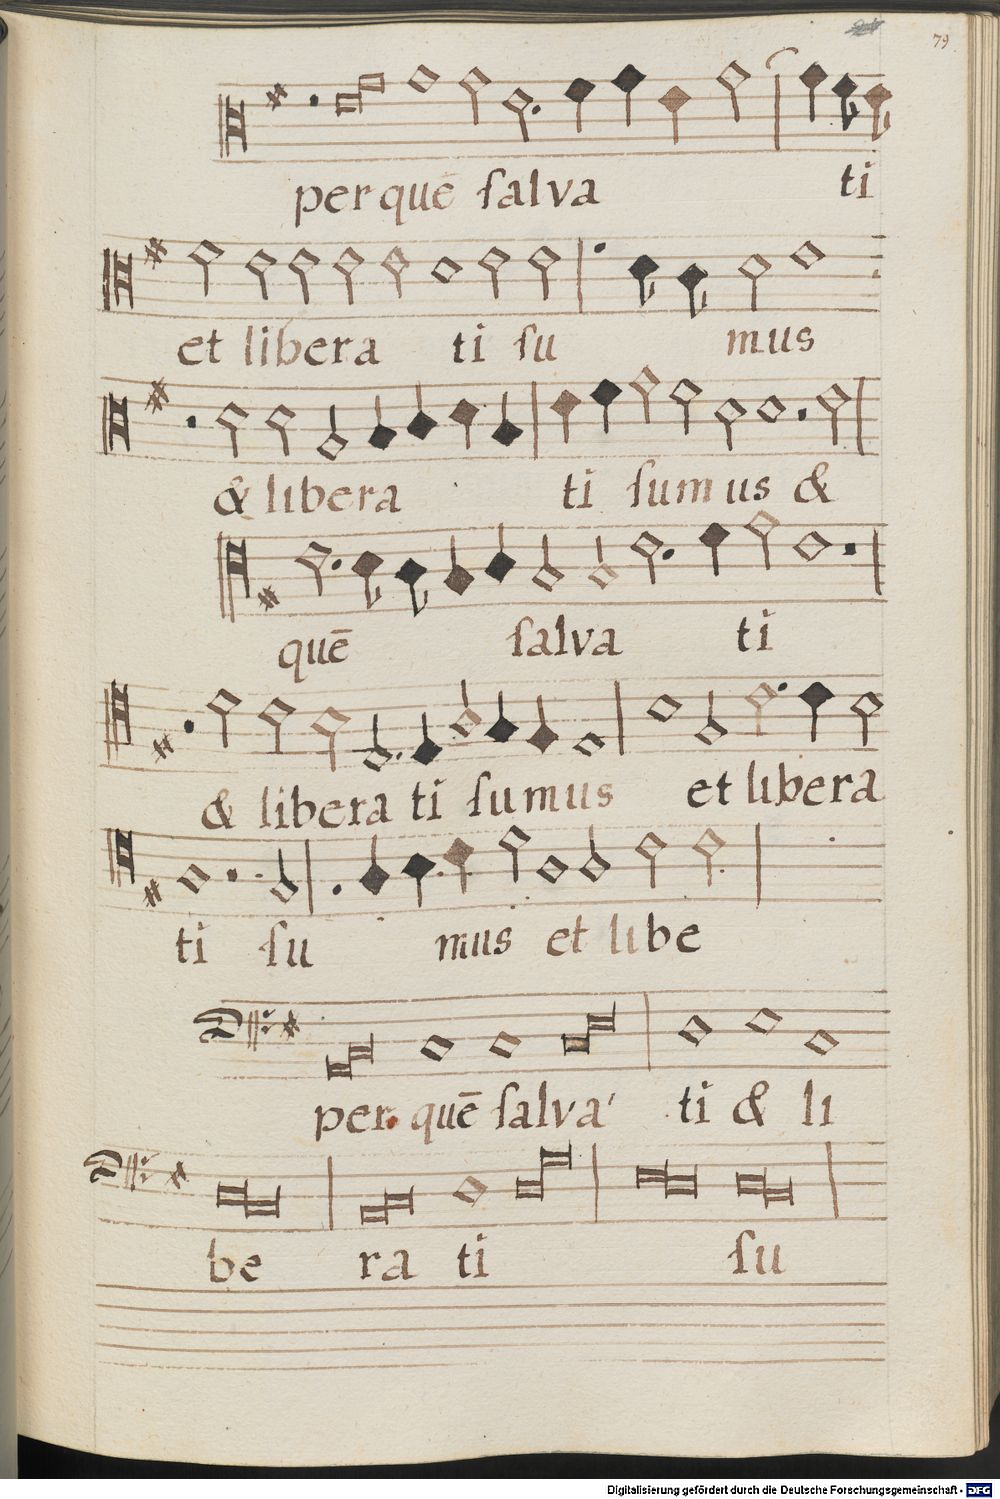 79
per quē ſalva ti
et libera ti ſu mus
& libera ti ſumus &
quē ſalva ti
& libera ti ſumus et libera
ti ſu mus et libe
per quē ſalva ti & li
be ra ti ſu
Digitalisierung gefördert durch die Deutsche Forschungsgemeinschaft - DFG